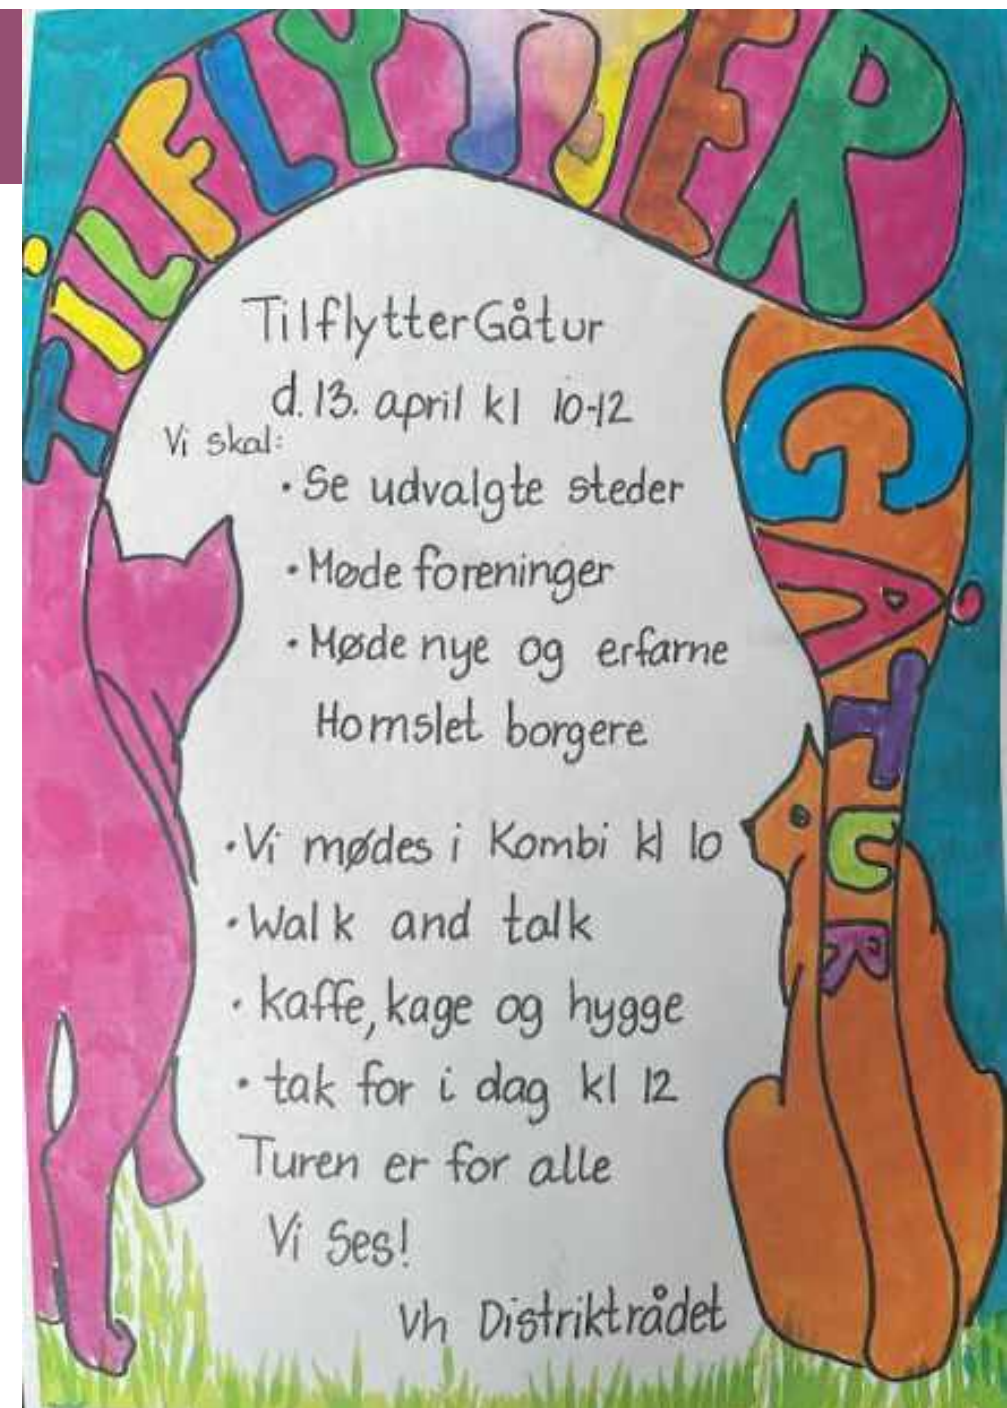 TILFLYTTER
GÅTUR
TilflytterGåtur
d. 13. april kl 10-12
Vi skal:
• Se udvalgte steder
• Møde foreninger
• Møde nye og erfarne
Hornslet borgere
• Vi mødes i Kombi kl 10
• Walk and talk
• kaffe, kage og hygge
• tak for i dag kl 12
Turen er for alle
Vi Ses!
Vh Distriktrådet